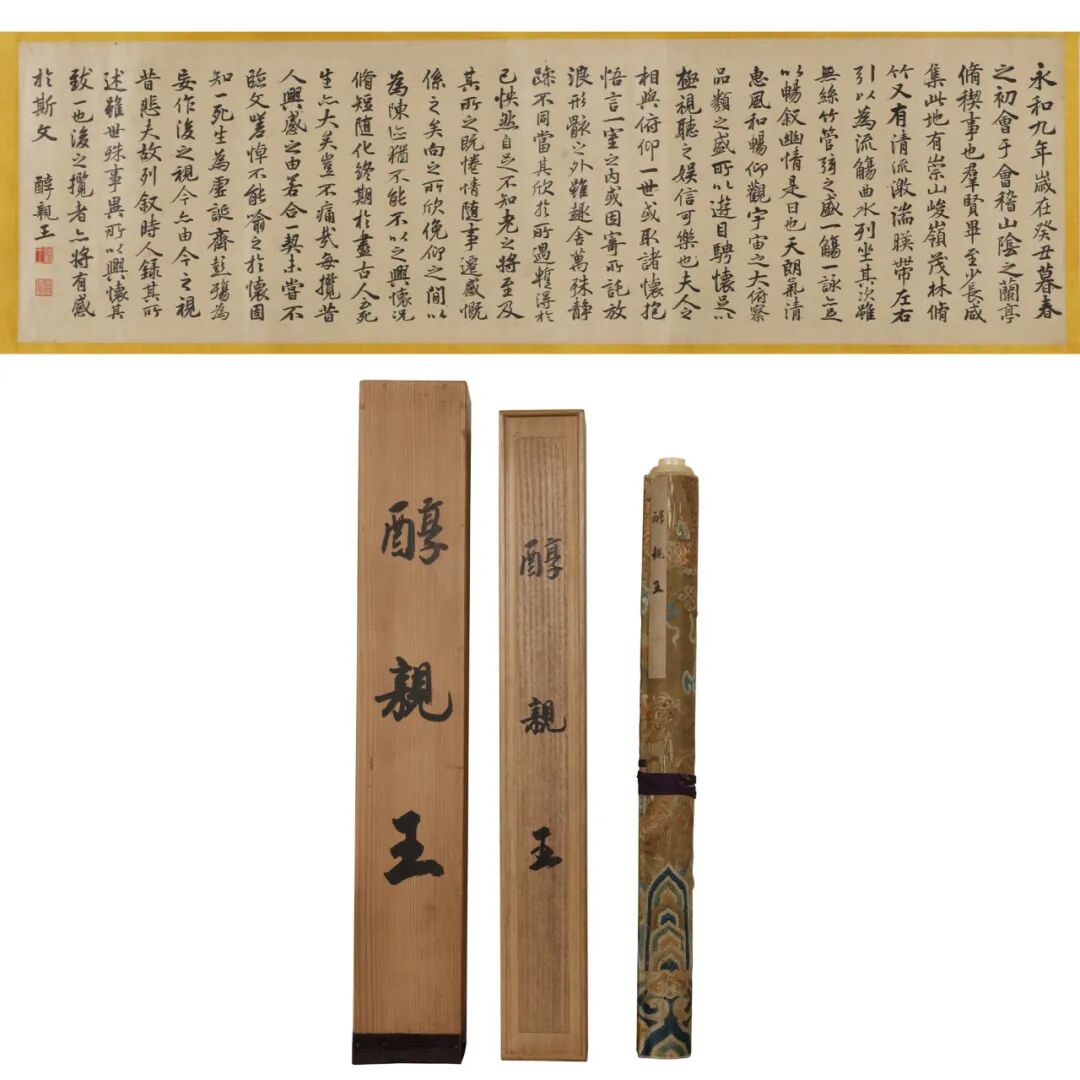 永和九年歲在癸丑暮春
之初會于會稽山陰之蘭亭
脩稧事也羣賢畢至少長咸
集此地有崇山峻嶺茂林脩
竹又有清流激湍暎帶左右
引以為流觴曲水列坐其次雖
無絲竹管弦之盛一觴一詠亦足
以暢叙幽情是日也天朗氣清
惠風和暢仰觀宇宙之大俯察
品類之盛所以遊目騁懷足以
極視聽之娛信可樂也夫人之
相與俯仰一世或取諸懷抱
悟言一室之內或因寄所託放
浪形骸之外雖趣舍萬殊静
躁不同當其欣於所遇暫得於
己怏然自足不知老之將至及
其所之既惓情随事遷感慨
係之矣向之所欣俛仰之間以
為陳迹猶不能不以之興懷況
脩短随化終期於盡古人云死
生亦大矣豈不痛哉每攬昔
人興感之由若合一契未嘗不
臨文嗟悼不能喻之於懷固
知一死生為虛誕齊彭殤為
妄作後之視今亦由今之視
昔悲夫故列叙時人録其所
述雖世殊事異所以興懷其
致一也後之攬者亦將有感
於斯文 醇親王
醇親王
醇親王
醇親王